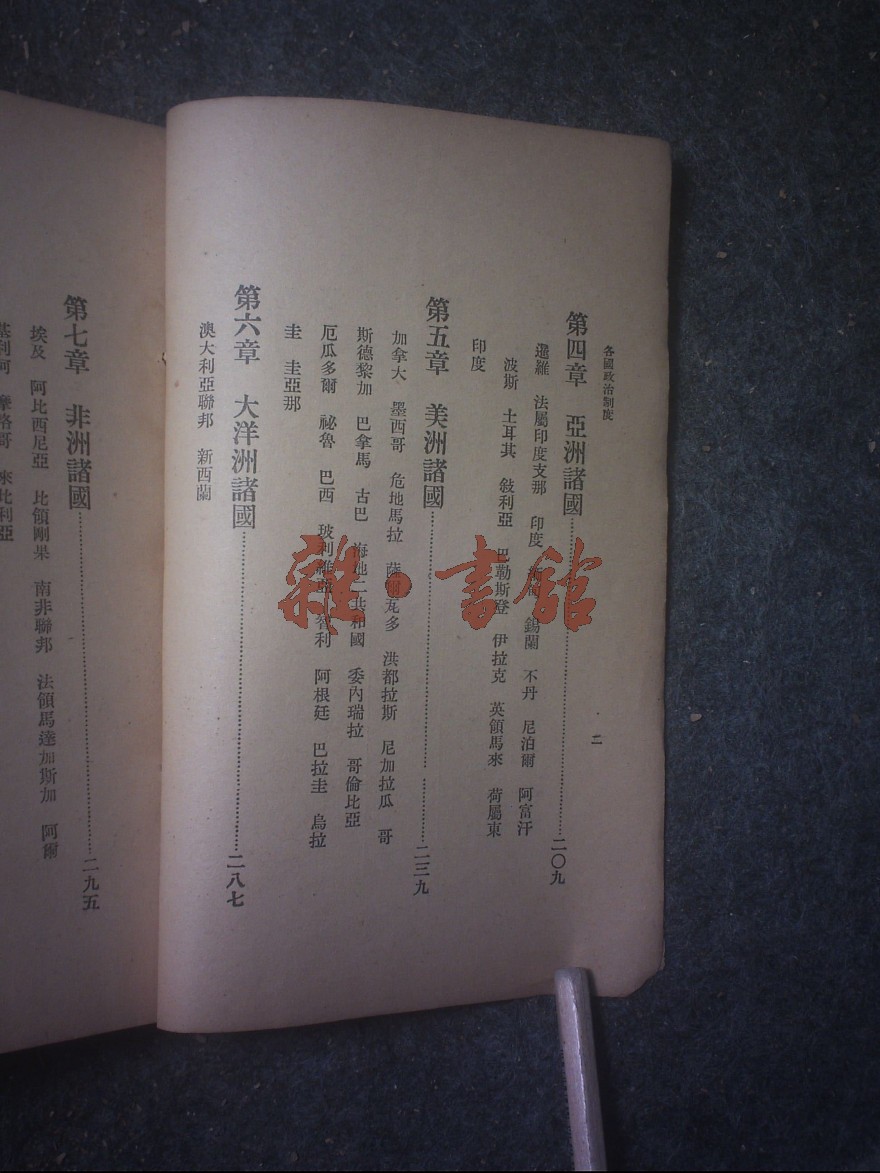 各國政治制度
二
第四章 亞洲諸國……二〇九
暹羅 法屬印度支那 印度 錫蘭 不丹 尼泊爾 阿富汗
波斯 土耳其 敍利亞 巴勒斯登 伊拉克 英領馬來 荷屬東
印度
第五章 美洲諸國……二三九
加拿大 墨西哥 危地馬拉 薩爾瓦多 洪都拉斯 尼加拉瓜 哥
斯德黎加 巴拿馬 古巴 海地二共和國 委內瑞拉 哥倫比亞
厄瓜多爾 祕魯 巴西 玻利維亞 智利 阿根廷 巴拉圭 烏拉
圭 圭亞那
第六章 大洋洲諸國……二八七
澳大利亞聯邦 新西蘭
第七章 非洲諸國……二九五
埃及 阿比西尼亞 比領剛果 南非聯邦 法領馬達加斯加 阿爾
基利阿 摩洛哥 來比利亞
雜·書館